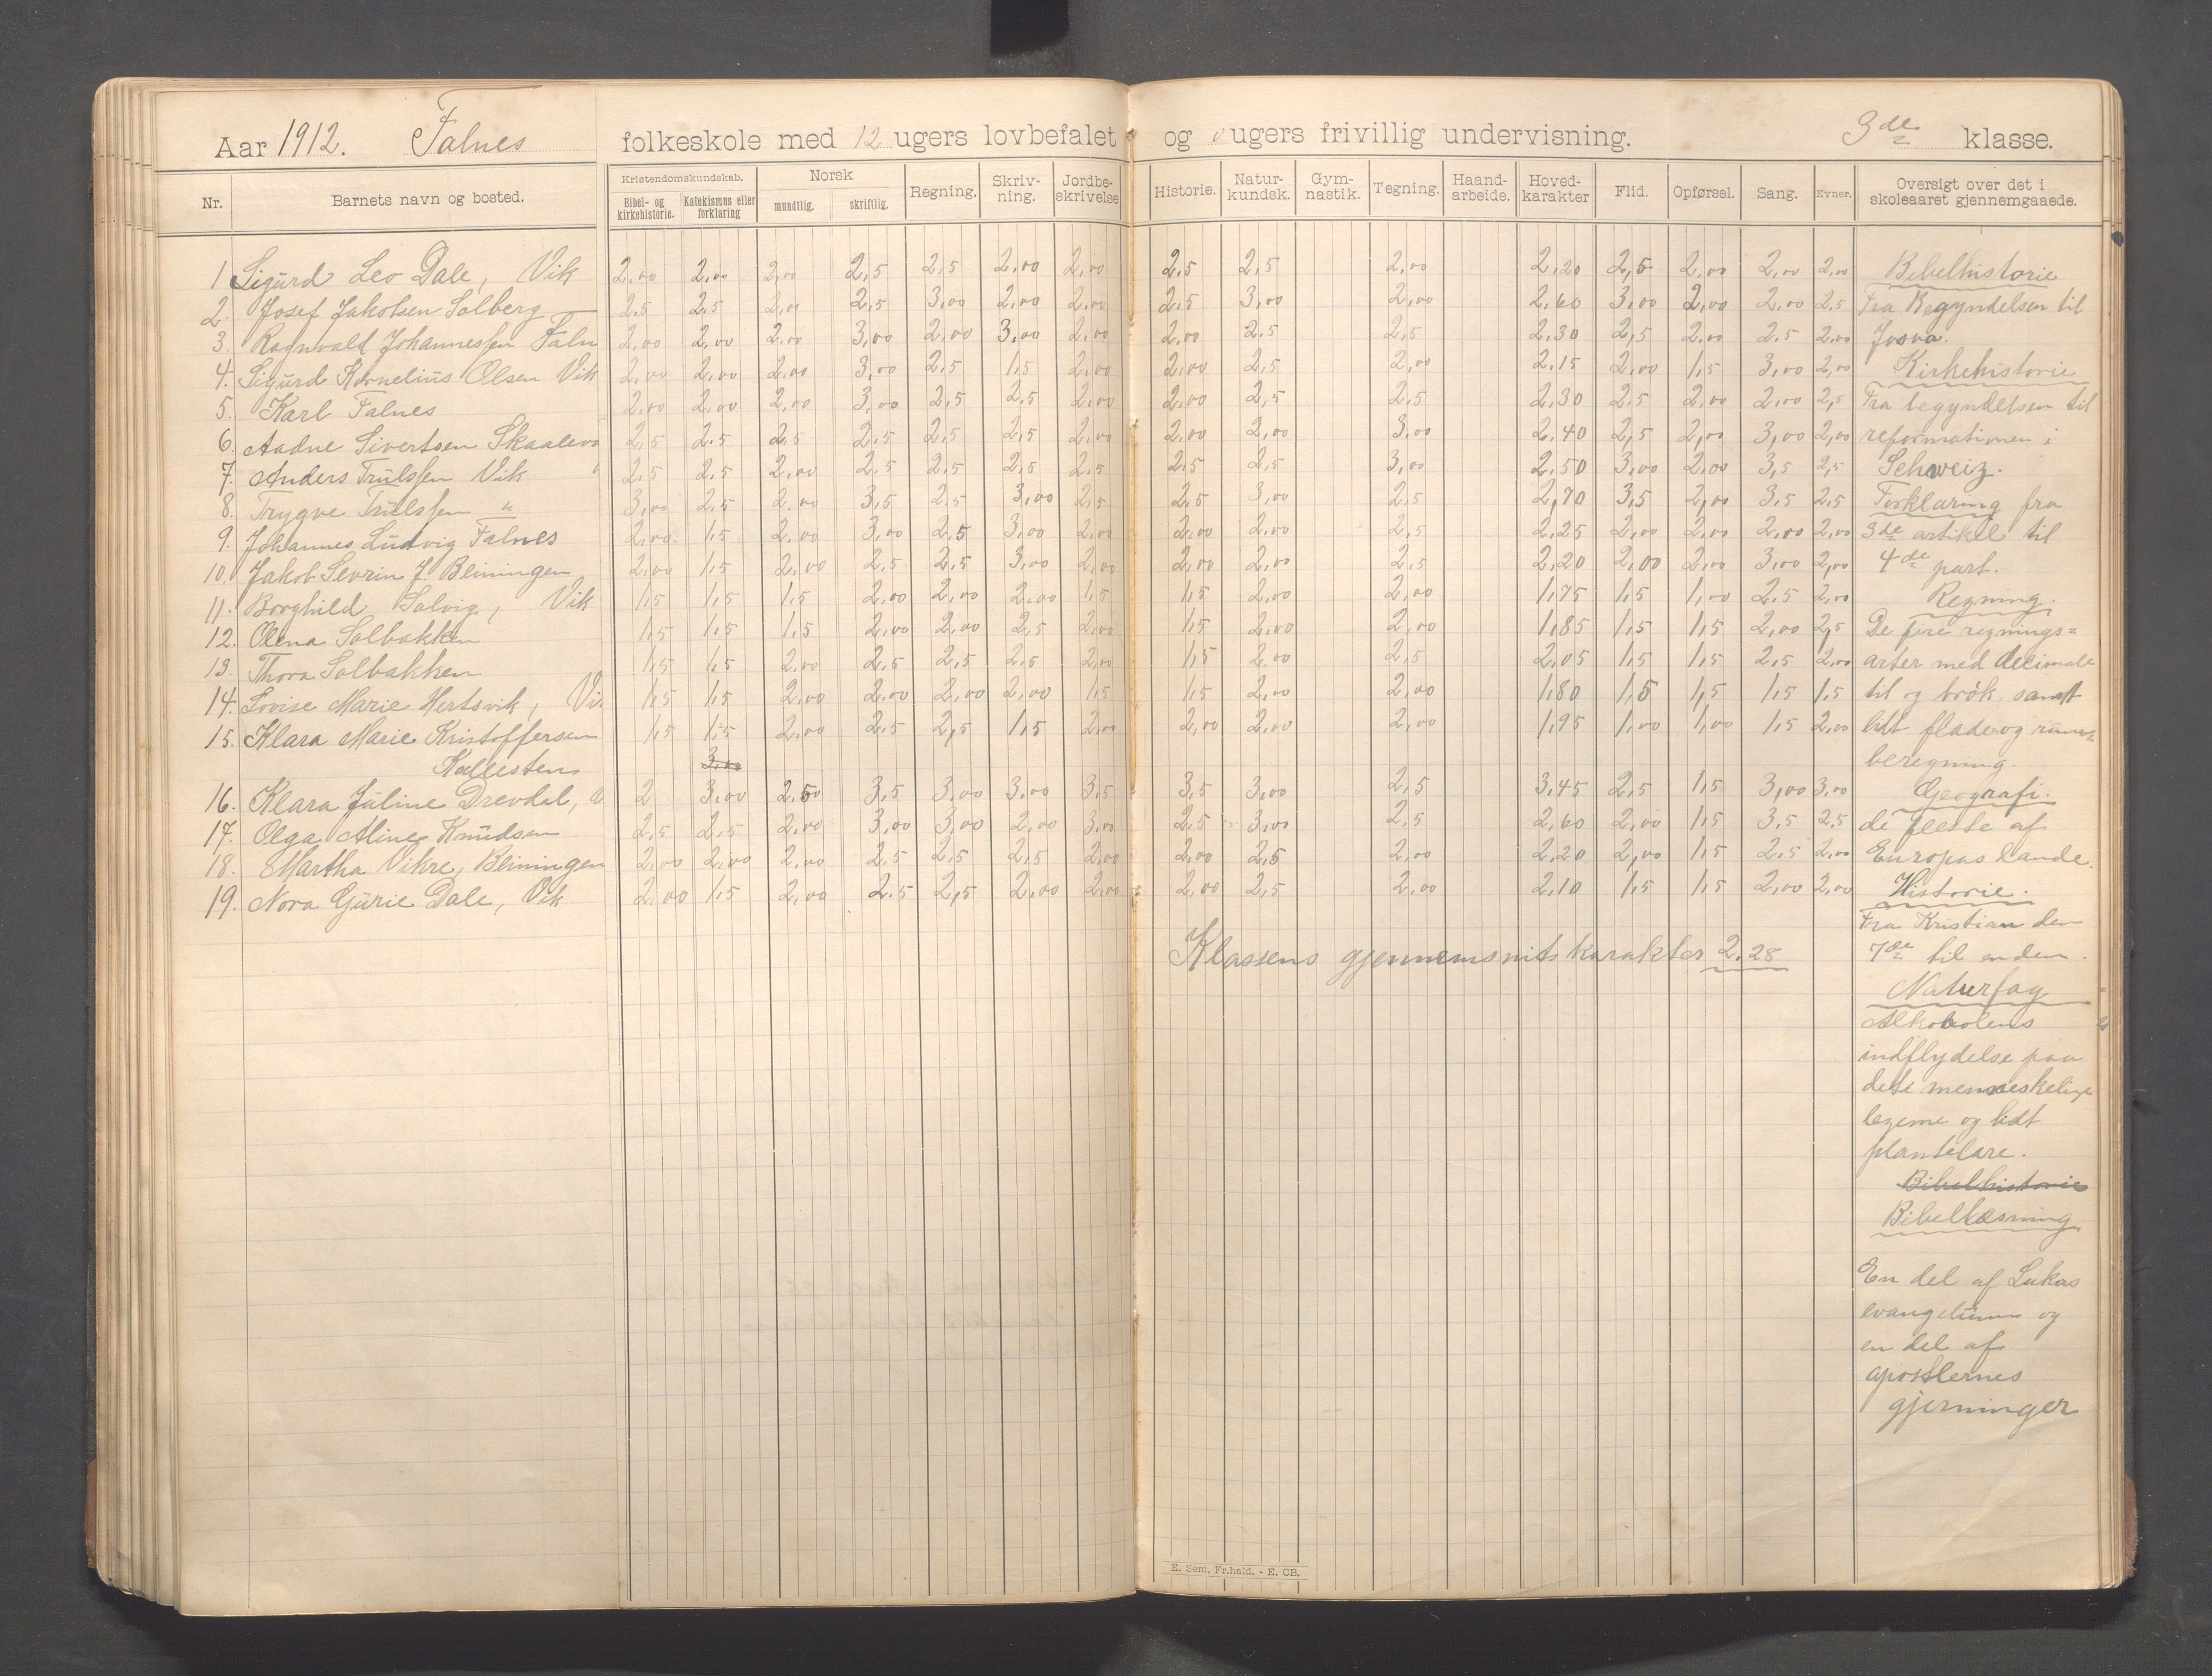 Aar 1912. Falnes folkeskole med 12 ugers lovbefalet og 0 ugers frivillig undervisning. 3de klasse.
Nr. Barnets navn og bosted. Kristendomskundskab. Bibel- og kirkehistorie. Katekismus eller forklaring Norsk mundtlig. skriftlig. Regning. Skriv-ning. Jordbe-skrivelse Historie. Natur-kundsk. Gym-nastik. Tegning. Haand-arbeide. Hoved-karakter Flid. Opførsel. Sang. Evner. Oversigt over det i skoleaaret gjennemgaaede.
1 Sigurd Leo Dale, Vik 2,00 2,00 2,00 2,5 2,5 2,00 2,00 2,5 2,5 2,00 2,20 2,5 2,00 2,00 2,00 Bibelhistorie
2. Josef Jakobsen Solberg 2,5 2,5 2,00 2,5 3,00 2,00 2,00 2,5 3,00 2,00 2,60 3,00 2,00 2,00 2,5 Fra Begyndelsen til
3. Ragnvald Johannessen Faln 2,00 2,00 2,00 3,00 2,00 3,00 2,00 2,00 2,5 2,5 2,30 2,5 2,00 2,5 2,00 Josva.
4. Sigurd Kornelius Olsen Vik 2,00 2,00 2,00 3,00 2,5 1,5 2,00 2,00 2,5 2,00 2,15 2,00 1,5 3,00 2,00 Kirkehistorie
5. Karl Falnes 2,00 2,00 2,00 3,00 2,5 2,5 2,00 2,00 2,5 2,5 2,30 2,5 2,00 2,00 2,5 Fra begyndelsen til
6. Aadne Sivertsen Skaalevo 2,5 2,5 2,5 2,5 2,5 2,5 2,00 2,00 2,00 3,00 2,40 2,5 2,00 3,00 2,00 reformationen i
7. Anders Trulssen Vik 2,5 2,5 2,00 2,5 2,5 2,5 2,5 2,5 2,5 3,00 2,50 3,00 2,00 3,5 2,5 Schweiz.
8. Trygve Trulssen " 3,00 2,5 2,00 3,5 2,5 3,00 2,5 2,5 3,00 2,5 2,70 3,5 2,00 3,5 2,5 Forklaring fra
9. Johannes Ludvig Falnes 2,00 1,5 2,00 3,00 2,5 3,00 2,00 2,00 2,00 2,5 2,25 2,00 2,00 2,00 2,00 3de artikel til
10. Jakob Sevrin J. Beiningen 2,00 1,5 2,00 2,5 2,5 3,00 2,00 2,00 2,00 2,5 2,20 2,00 2,00 3,00 2,00 4de part.
11. Borghild Solvig, Vik 1,5 1,5 1,5 2,00 2,00 2,00 1,5 1,5 2,00 2,00 1,75 1,5 1,00 2,5 2,00 Regning.
12. Olena Solbakken 1,5 1,5 1,5 2,00 2,00 2,5 2,00 1,5 2,00 2,00 1,85 1,5 1,5 2,00 2,5 De fire regnings=
13. Thora Solbakken 1,5 1,5 2,00 2,5 2,5 2,5 2,00 1,5 2,00 2,5 2,05 1,5 1,5 2,5 2,00 arter med decimale
14. Lovise Marie Hertsvik, Vi 1,5 1,5 2,00 2,00 2,00 2,00 1,5 1,5 2,00 2,00 1,80 1,5 1,5 1,5 1,5 til og brøk samt
15. Klara Marie Kristoffersen 1,5 1,5 2,00 2,5 2,5 1,5 2,00 2,00 2,00 2,00 1,95 1,00 1,00 1,5 2,00 lidt flade og
Kallesten 3,00 beregning.
16. Klara Juline Drevdal, V 2 3,00 2,50 3,5 3,00 3,00 3,5 3,5 3,00 2,5 3,45 2,5 1,5 3,00 3,00 Geografi.
17. Olga Aline Knudsen 2,5 2,5 2,00 3,00 3,00 2,00 3,00 2,5 3,00 2,5 2,60 2,00 1,5 3,5 2,5 de fleste af
18. Martha Vikre, Beiningen 2,00 2,00 2,00 2,5 2,5 2,5 2,00 2,00 2,5 2,00 2,20 2,00 1,5 2,5 2,00 Europas lande.
19. Nora Gurie Dale, Vik 2,00 1,5 2,00 2.5 2,5 2,00 2,00 2,00 2,5 2,00 2,10 1,5 1,5 2,00 2,00 Historie.
Fra Kristian den
Klassens gjennemsnits karakter 2,28 7de til enden.
Naturfag
Alkoholens
indflydelse paa
det menneskelige
legeme og lidt
plantelære.
Bibelhistorie
Bibellæsning
En del af Lukas
evangelium og
en del af
apostlernes
gjerninger
E. Sem, Fr.hald. - E. CB.